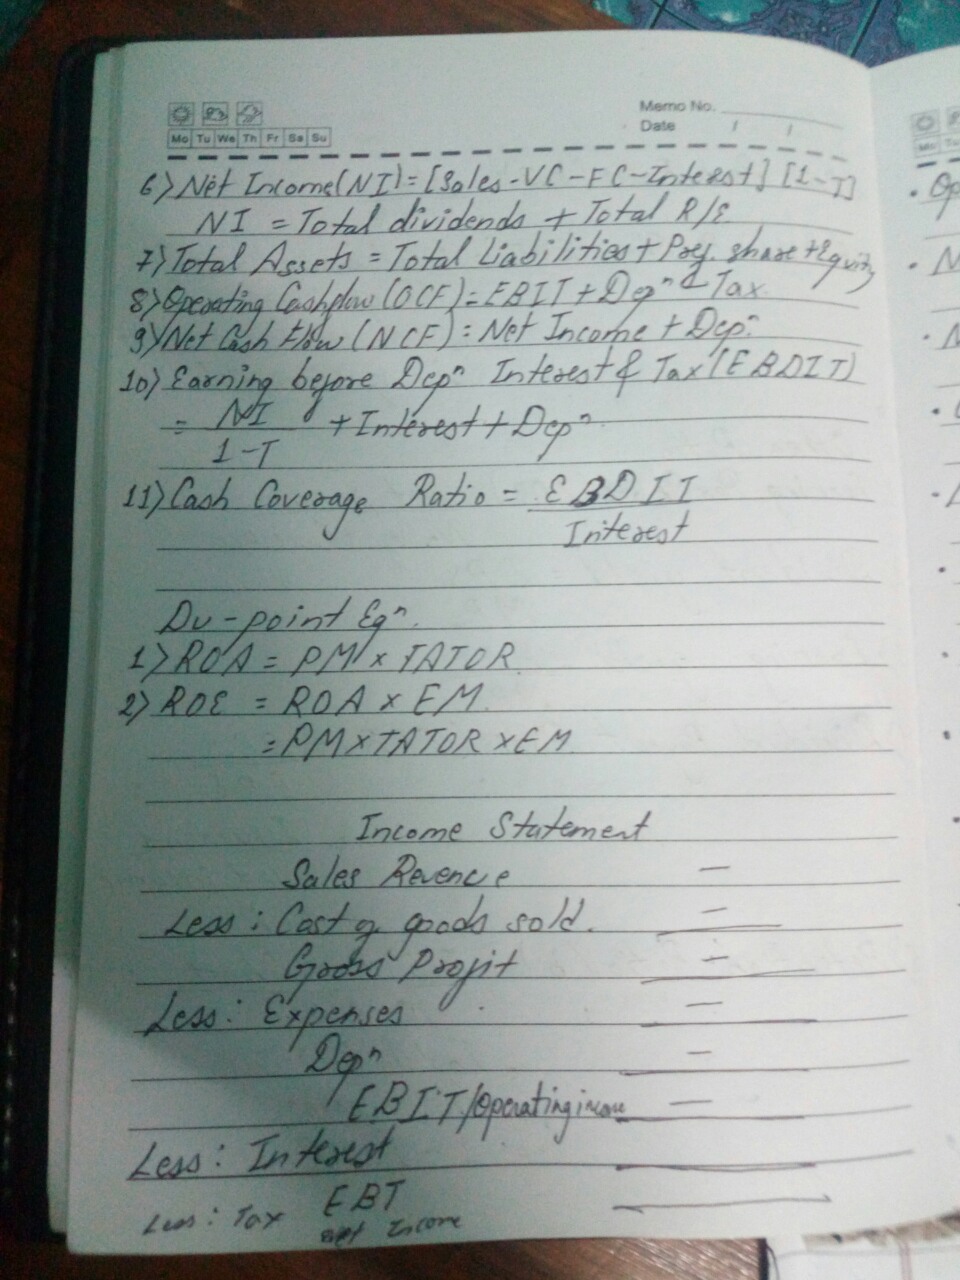 Memo No.
Mo Tu We Th Fr Sa Su
Date / /
6) Net Income(NI) = [Sales - VC - FC - Interest] [1-T]
NI = Total dividends + Total R/E
7) Total Assets = Total Liabilities + Pref. share + Equity
8) Operating Cashflow (OCF) = EBIT + Depⁿ - Tax
9) Net Cash Flow (NCF) = Net Income + Depⁿ
10) Earning before Depⁿ Interest & Tax (EBDIT)
= NI / 1-T + Interest + Depⁿ
11) Cash Coverage Ratio = EBDIT / Interest
Du-point Eqⁿ.
1) ROA = PM x TATOR
2) ROE = ROA x EM
= PM x TATOR x EM
Income Statement
Sales Revenue —
Less : Cost of goods sold. —
Gross Profit —
Less : Expenses —
Depⁿ —
EBIT/Operating income —
Less : Interest
EBT
Less : Tax
Net Income